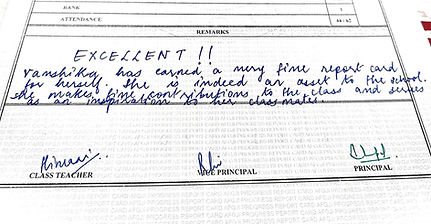 RANK 1
ATTENDANCE 44 / 47
REMARKS
EXCELLENT !!
Vanshika has earned a very fine report card
for herself. She is indeed an asset to the school.
She makes fine contributions to the class and serves
as an inspiration to her classmates.
CLASS TEACHER VICE PRINCIPAL PRINCIPAL